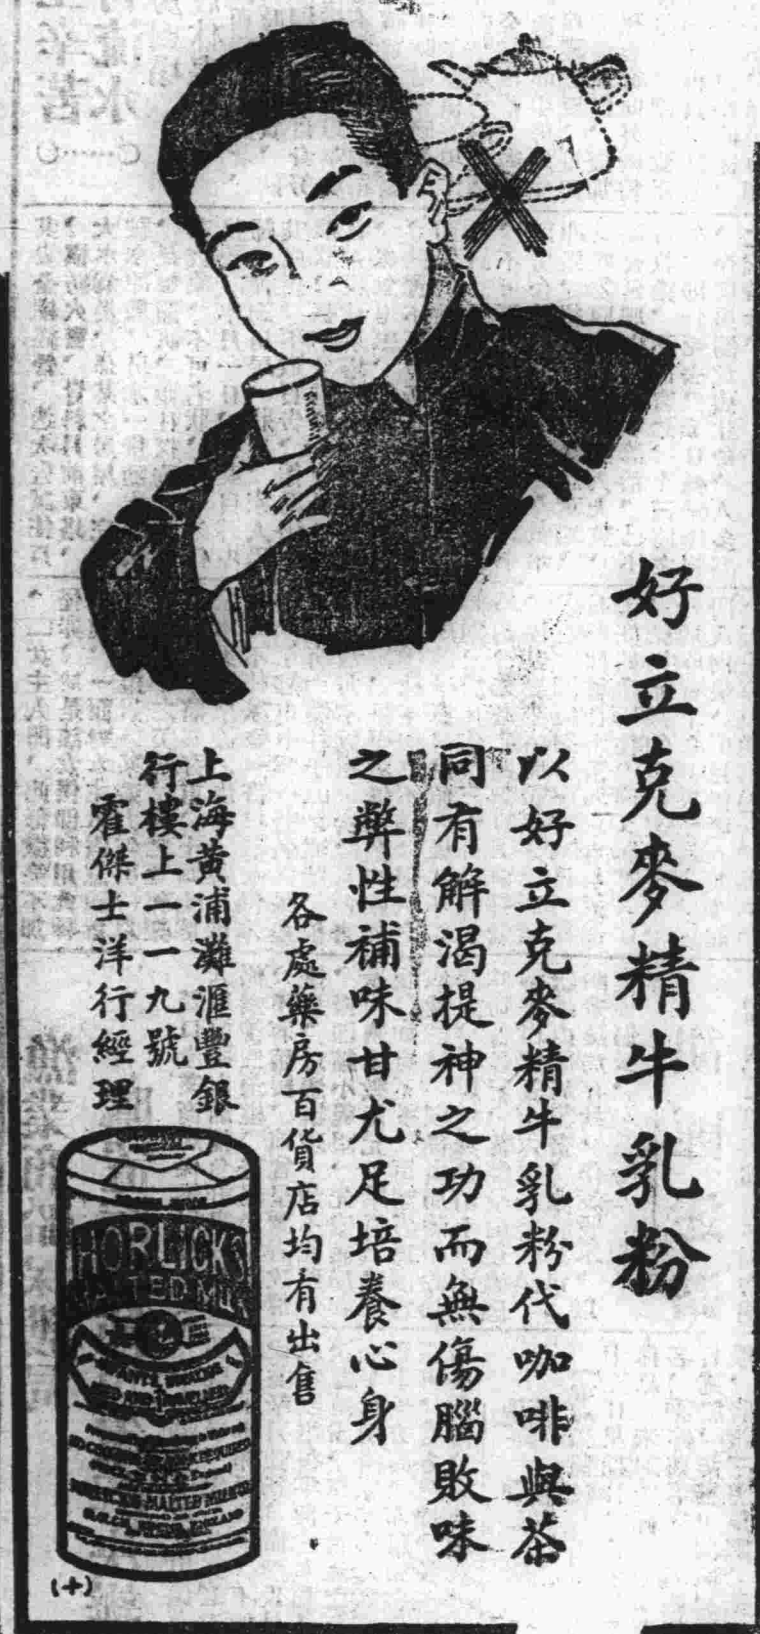 好立克麥精牛乳粉
以好立克麥精牛乳粉代咖啡與茶
同有解渴提神之功而無傷腦敗味
之弊性補味甘尤足培養心身
各處藥房百貨店均有出售
上海黃浦灘滙豐銀
行樓上一一九號
霍傑士洋行經理
HORLICK'S
MALTED MILK
(十)